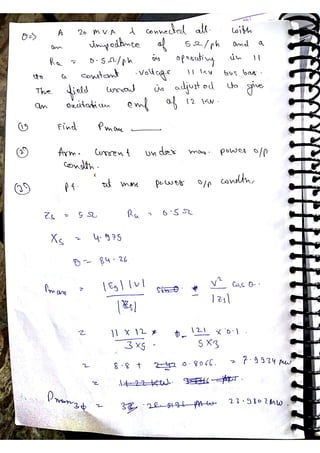 Q.) A 20 MVA λ connected alt. with
an impedance of 5Ω/ph and a
Ra = 0.5Ω/ph is operating in ||
to a constant voltage 11 kv bus bar.
The field current is adjusted to give
an excitation emf of 12 kv.
(1) Find Pmax
(2) Arm. current under max. power o/p
condtn.
(3) pf. at max power o/p condtn,
Zs = 5Ω Ra = 0.5Ω
Xs = 4.975
θ = 84.26
Pmax = |Eg| |V| / |Zs| - V² / |Zs| Cos θ.
= 11 × 12 / 3×5 - 121 / 5×3 × 0.1
= 8.8 + 0.8066. = 7.9934 MW
Pmax 3φ = 23.9802 MW.